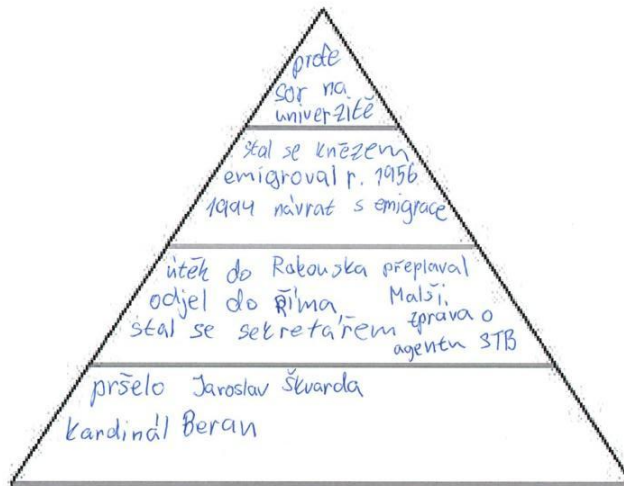 profe
sor na
univerzitě
stal se knězem
emigroval r. 1956
1994 návrat s emigrace
útěk do Rakouska přeplaval
odjel do Říma Malši
stal se sekretářem zpráva o
agentu STB
pršelo Jaroslav Škvarda
kardinál Beran